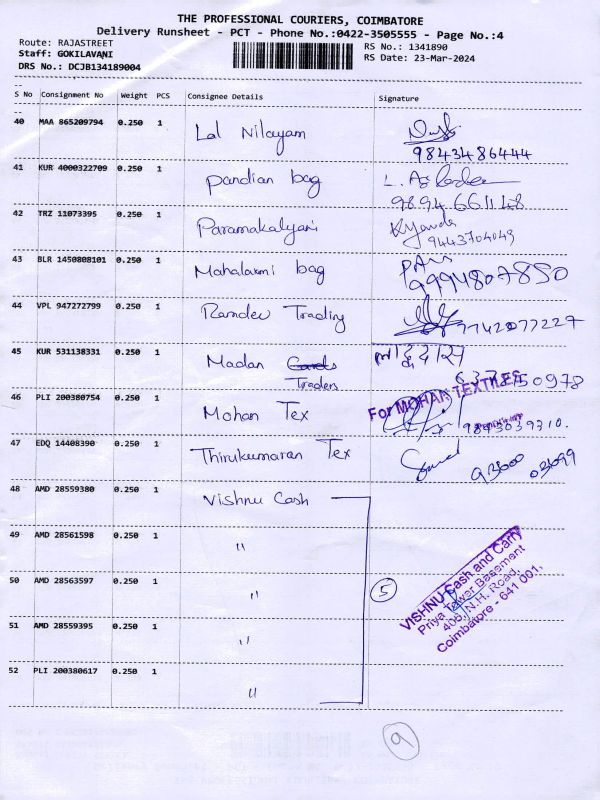 THE PROFESSIONAL COURIERS, COIMBATORE
Delivery Runsheet - PCT - Phone No.:0422-3505555 - Page No.:4
Route: RAJASTREET
Staff: GOKILAVANI
DRS No.: DCJB134189004
RS No.: 1341890
RS Date: 23-Mar-2024
S No Consignment No Weight PCS Consignee Details Signature
40 MAA 865209794 0.250 1 Lal Nilayam
9843486444
41 KUR 4000322709 0.250 1 Pandian bag
9894661148
42 TRZ 11073395 0.250 1 Paramakalyani
9443704049
43 BLR 1450808101 0.250 1 Mahalaxmi bag
9994807850
44 VPL 947272799 0.250 1 Ramdev Trading 7742077227
45 KUR 531138331 0.250 1 Madan Cards
Traders
46 PLI 200380754 0.250 1 Mohan Tex For MOHAN TEXTILES
9843039310.
47 EDQ 14408390 0.250 1 Thirukumaran Tex 93600 03099
48 AMD 28559380 0.250 1 Vishnu Cash
49 AMD 28561598 0.250 1 "
50 AMD 28563597 0.250 1 "
51 AMD 28559395 0.250 1 "
52 PLI 200380617 0.250 1 "
5
VISHNU Cash and Carry
Priya Tower Basement
406, N.H. Road,
Coimbatore - 641 001.
9